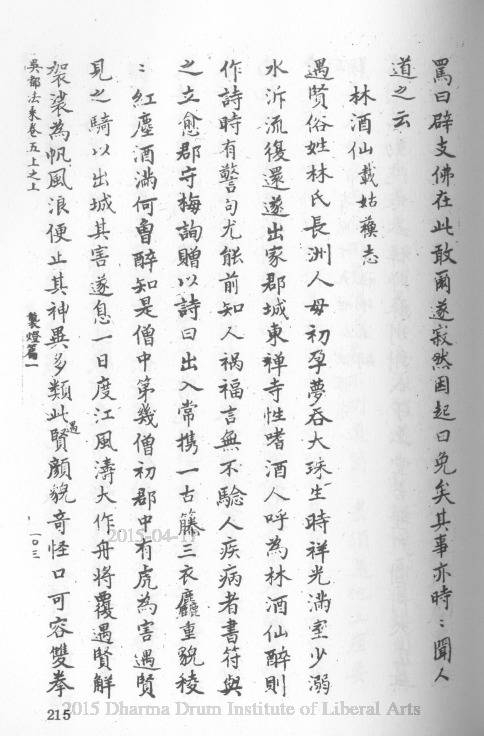 罵曰辟支佛在此敢爾遂寂然因起曰免矣其事亦時：聞人
道之云
林酒仙 載姑蘓志
遇賢俗姓林氏長洲人母初孕夢吞大珠生時祥光滿室少溺
水泝流復還遂出家郡城東禅寺性嗜酒人呼為林酒仙醉則
作詩時有警句尤能前知人禍福言無不驗人疾病者書符與
之立愈郡守梅詢贈以詩曰出入常携一古藤三衣麤重貌稜
：紅塵酒滿何曾醉知是僧中第幾僧初郡中有虎為害遇賢
見之騎以出城其害遂息一日度江風濤大作舟將覆遇賢解
袈裟為帆風浪便止其神異多類此遇賢顏貌奇怪口可容雙拳
吳都法乘卷五上之上
製燈篇一
一〇三
215
2015-04-1
2015 Dharma Drum Institute of Liberal Arts